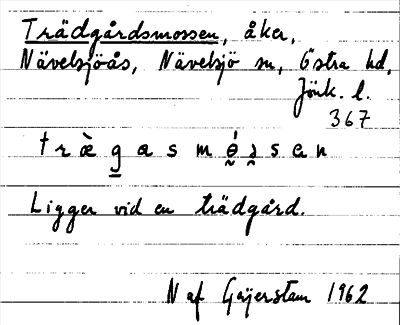 Trädgårdsmossen, åker,
Nävelsjöås, Nävelsjö sn, Östra hd,
Jönk. l.
367
Ligger vid en trädgård.
N af Geijerstam 1962